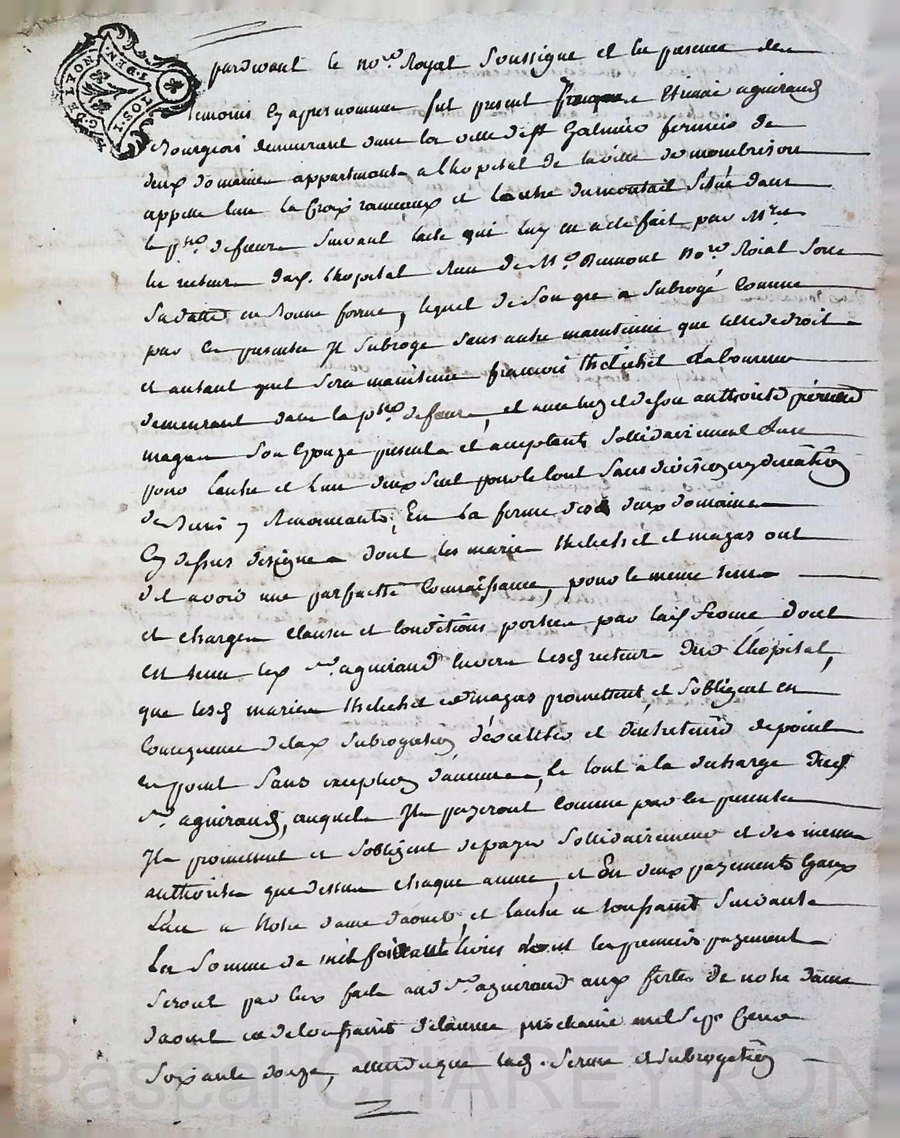 G. DE LYON
I. SOL
4. DEN.
pardevant le no.re Royal Soussigne et En presence des
temoins Cy apres nomme fut present Etienne aguiraud
Bourgeois demeurant dans la ville de st Galmier fermier de
deux domaines appartenants a lhopital de la ville de monbrison
appelle lun la Croix rameaux et lautre dumontail Situé dans
la p.sse de feurs Suivant lacte qui luy en a ete fait par M.rs
les recteurs dud. lhopital Reçu de M.e no.re Roial Sous
Sa datte en bonne forme, lequel de Son gre a Subrogé Comme
par Ces presentes Il Subroge Sans autre maintenue que celle de droit
et autant quil Sera maintenu francois thelichel Laboureur
demeurant dans la p.sse de feurs, et avec luy et de Son authorité
magas Son Epouze presents et acceptants Sollidairement Lun
pour lautre et lun deux Seul pour le tout Sans division ny discution
de biens y Renonceants, En La ferme desd deux domaines
Cy dessus designe dont les maries thelichel et magas ont
dit avoir une parfaitte Connaissance, pour le meme tems
et charges clauses et Conditions portees par lad ferme dont
est tenu led s.r aguiraud Envers Lesd recteurs dud Lhopital,
que lesd maries thelichel et magas promettent et Sobligent en
Consequence de lad Subrogation, dexecutter et dentretenir de point
en point Sans exception daucune, le tout a la decharge dud
s.r aguiraud, auquel Ils payeront comme par Ces presentes
Ils promettent et Sobligent de payer Sollidairement et des memes
authorites que dessus chaque annee, et En deux payements Egaux
Lun a Notre dame daout, et lautre a toussaint Suivants
La Somme de mil livres dont les premiers payements
Seront par Eux faits aud s.r aguiraud aux fettes de notre dame
daout et de toussaint de lannee prochaine mil Sept Cent
Soixante douze, attendu que lad. ferme et Subrogation
Pascal CHAREYRON